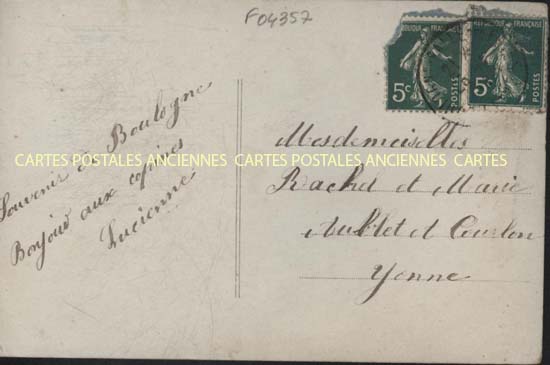 F04357
RÉPUBLIQUE FRANÇAISE
5c
POSTES
RÉPUBLIQUE FRANÇAISE
5c
POSTES
Souvenir de Boulogne
Bonjour aux copines
Lucienne
Mesdemoiselles
Rachel et Marie
Aublet à Courlon
Yonne
CARTES POSTALES ANCIENNES CARTES POSTALES ANCIENNES CARTES